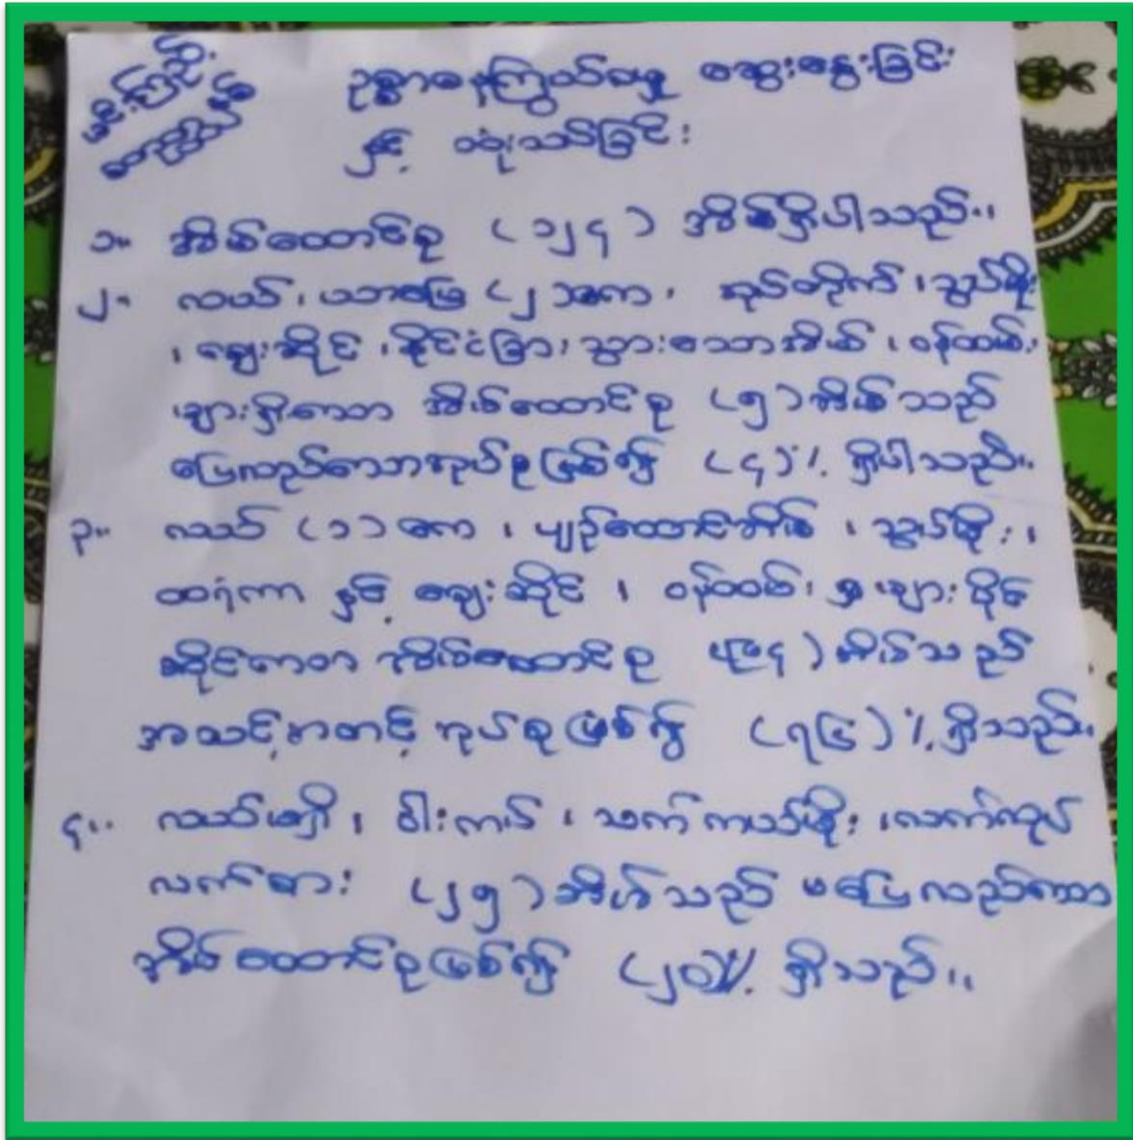 ဥစ္စာဓနကြွယ်ဝမှု ဆွေးနွေးခြင်း
နှင့် သုံးသပ်ခြင်း
၁။ အိမ်ထောင်စု (၁၂၄) အိမ်ရှိပါသည်။
၂။ လယ်၊ ယာမြေ (၂) ဧက၊ အုပ်တိုက်၊ သွပ်မိုး
၊ ဈေးဆိုင်၊ နိုင်ငံခြားသွားသောအိမ်၊ ဝန်ထမ်း
များရှိသော အိမ်ထောင်စု (၅) အိမ်သည်
ပြေလည်သောအုပ်စုဖြစ်၍ (၄)% ရှိပါသည်။
၃။ လယ် (၁) ဧက၊ ပျဉ်ထောင်အိမ်၊ သွပ်မိုး၊
ထရံကာ နှင့် ဈေးဆိုင်၊ ဝန်ထမ်း များ
ဆိုင်သော အိမ်ထောင်စု (၉၄) အိမ်သည်
အသင့်အတင့်အုပ်စုဖြစ်၍ (၇၆)% ရှိသည်။
၄။ လယ်မရှိ၊ ဝါးကပ်၊ သက်ကယ်မိုး၊ လက်လုပ်
လက်စား (၂၅) အိမ်သည် မပြေလည်သော
အိမ်ထောင်စုဖြစ်၍ (၂၀)% ရှိသည်။